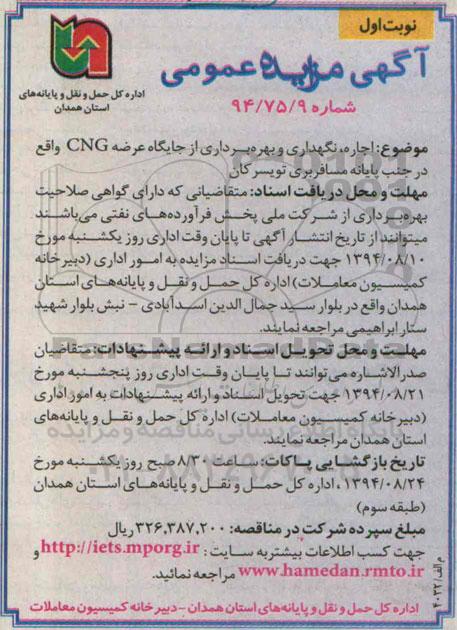 نوبت اول
آگهی مزایده عمومی
شماره ۹۴/۷۵/۹
اداره کل حمل و نقل و پایانه‌های
استان همدان
موضوع: اجاره، نگهداری و بهره‌برداری از جایگاه عرضه CNG واقع
در جنب پایانه مسافربری تویسرکان
مهلت و محل دریافت اسناد: متقاضیانی که دارای گواهی صلاحیت
بهره‌برداری از شرکت ملی پخش فرآورده‌های نفتی می‌باشند
میتوانند از تاریخ انتشار آگهی تا پایان وقت اداری روز یکشنبه مورخ
۱۳۹۴/۰۸/۱۰ جهت دریافت اسناد مزایده به امور اداری (دبیرخانه
کمیسیون معاملات) اداره کل حمل و نقل و پایانه‌های استان
همدان واقع در بلوار سید جمال الدین اسدآبادی - نبش بلوار شهید
ستار ابراهیمی مراجعه نمایند.
مهلت و محل تحویل اسناد و ارائه پیشنهادات: متقاضیان
صدرالاشاره می‌توانند تا پایان وقت اداری روز پنجشنبه مورخ
۱۳۹۴/۰۸/۲۱ جهت تحویل اسناد و ارائه پیشنهادات به امور اداری
(دبیرخانه کمیسیون معاملات) اداره کل حمل و نقل و پایانه‌های
استان همدان مراجعه نمایند.
تاریخ بازگشایی پاکات: ساعت ۸/۳۰ صبح روز یکشنبه مورخ
۱۳۹۴/۰۸/۲۴، اداره کل حمل و نقل و پایانه‌های استان همدان
(طبقه سوم)
مبلغ سپرده شرکت در مناقصه: ۳۲۶,۳۸۷,۲۰۰ ریال
جهت کسب اطلاعات بیشتر به سایت: http://iets.mporg.ir و
www.hamedan.rmto.ir مراجعه نمائید.
م الف ۴۰۳۲
اداره کل حمل و نقل و پایانه‌های استان همدان - دبیرخانه کمیسیون معاملات